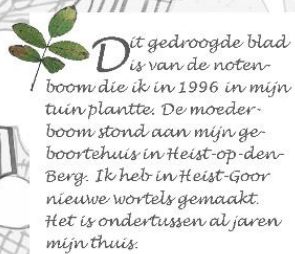 Dit gedroogde blad
is van de noten-
boom die ik in 1996 in mijn
tuin plantte. De moeder-
boom stond aan mijn ge-
boortehuis in Heist-op-den-
Berg. Ik heb in Heist-Goor
nieuwe wortels gemaakt.
Het is ondertussen al jaren
mijn thuis.